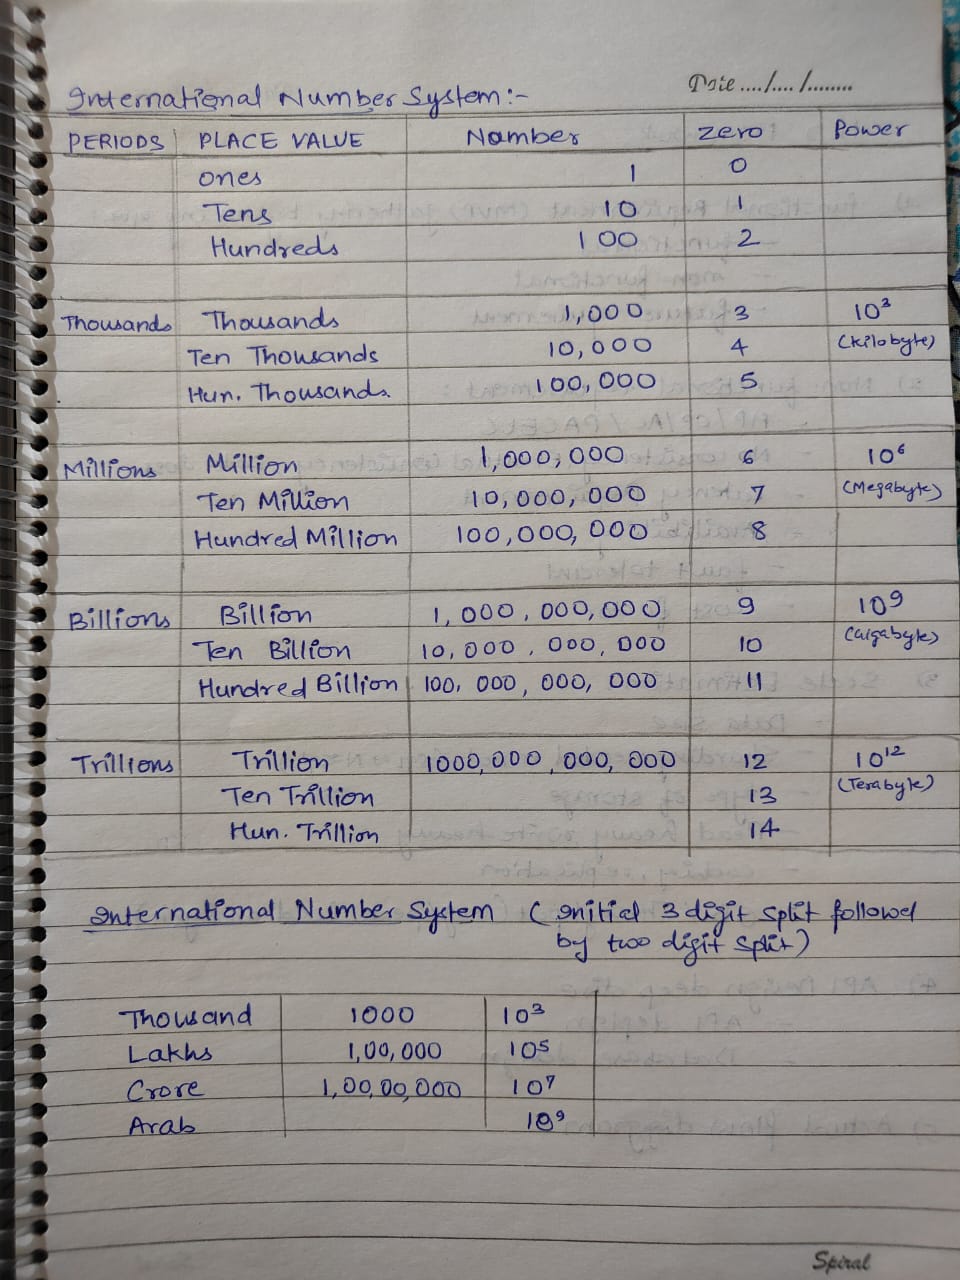 Date..../..../........
International Number System:-
PERIODS PLACE VALUE Number zero Power
ones 1 0
Tens 10 1
Hundreds 100 2
Thousands Thousands 1,000 3 10³
Ten Thousands 10,000 4 (Kilobyte)
Hun. Thousands. 100,000 5
Millions Million 1,000,000 6 10⁶
Ten Million 10,000,000 7 (Megabyte)
Hundred Million 100,000,000 8
Billions Billion 1,000,000,000 9 10⁹
Ten Billion 10,000,000,000 10 (Gigabyte)
Hundred Billion 100,000,000,000 11
Trillions Trillion 1000,000,000,000 12 10¹²
Ten Trillion 13 (Terabyte)
Hun. Trillion 14
International Number System (initial 3 digit split followed
by two digit split)
Thousand 1000 10³
Lakhs 1,00,000 10⁵
Crore 1,00,00,000 10⁷
Arab 10⁹
Spiral